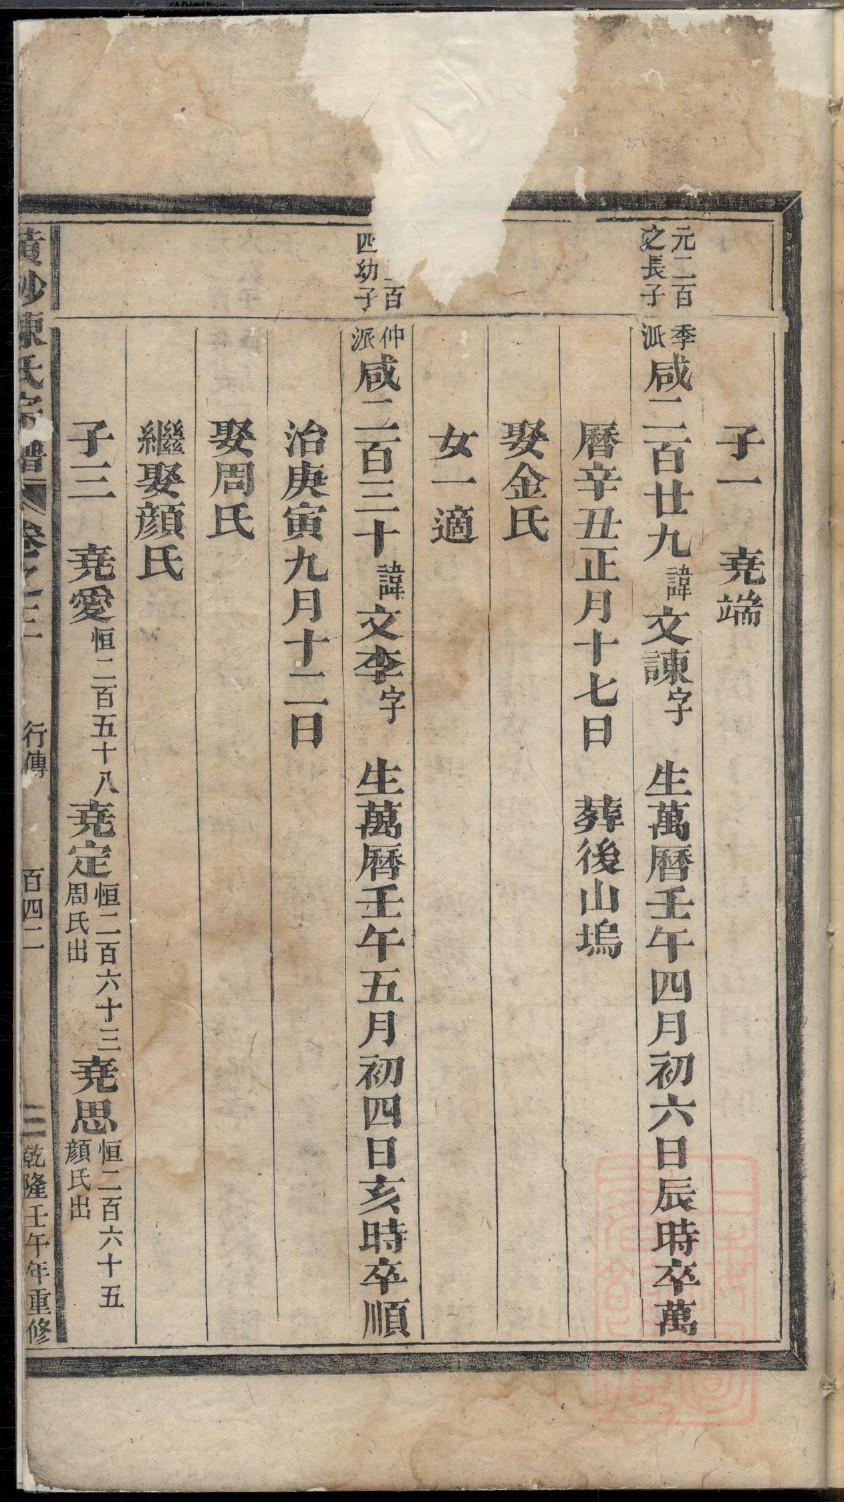 子一 堯端
元二百季
之長子派
咸二百廿九諱文諫字 生萬曆壬午四月初六日辰時卒萬
曆辛丑正月十七日 葬後山塢
娶金氏
女一適
百仲
四幼子派
咸二百三十諱文李字 生萬曆壬午五月初四日亥時卒順
治庚寅九月十二日
娶周氏
繼娶顏氏
子三 堯愛恒二百五十八堯定恒二百六十三周氏出堯思恒二百六十五顏氏出
陳氏宗譜 卷之三 行傳 百四二 乾隆壬午年重修